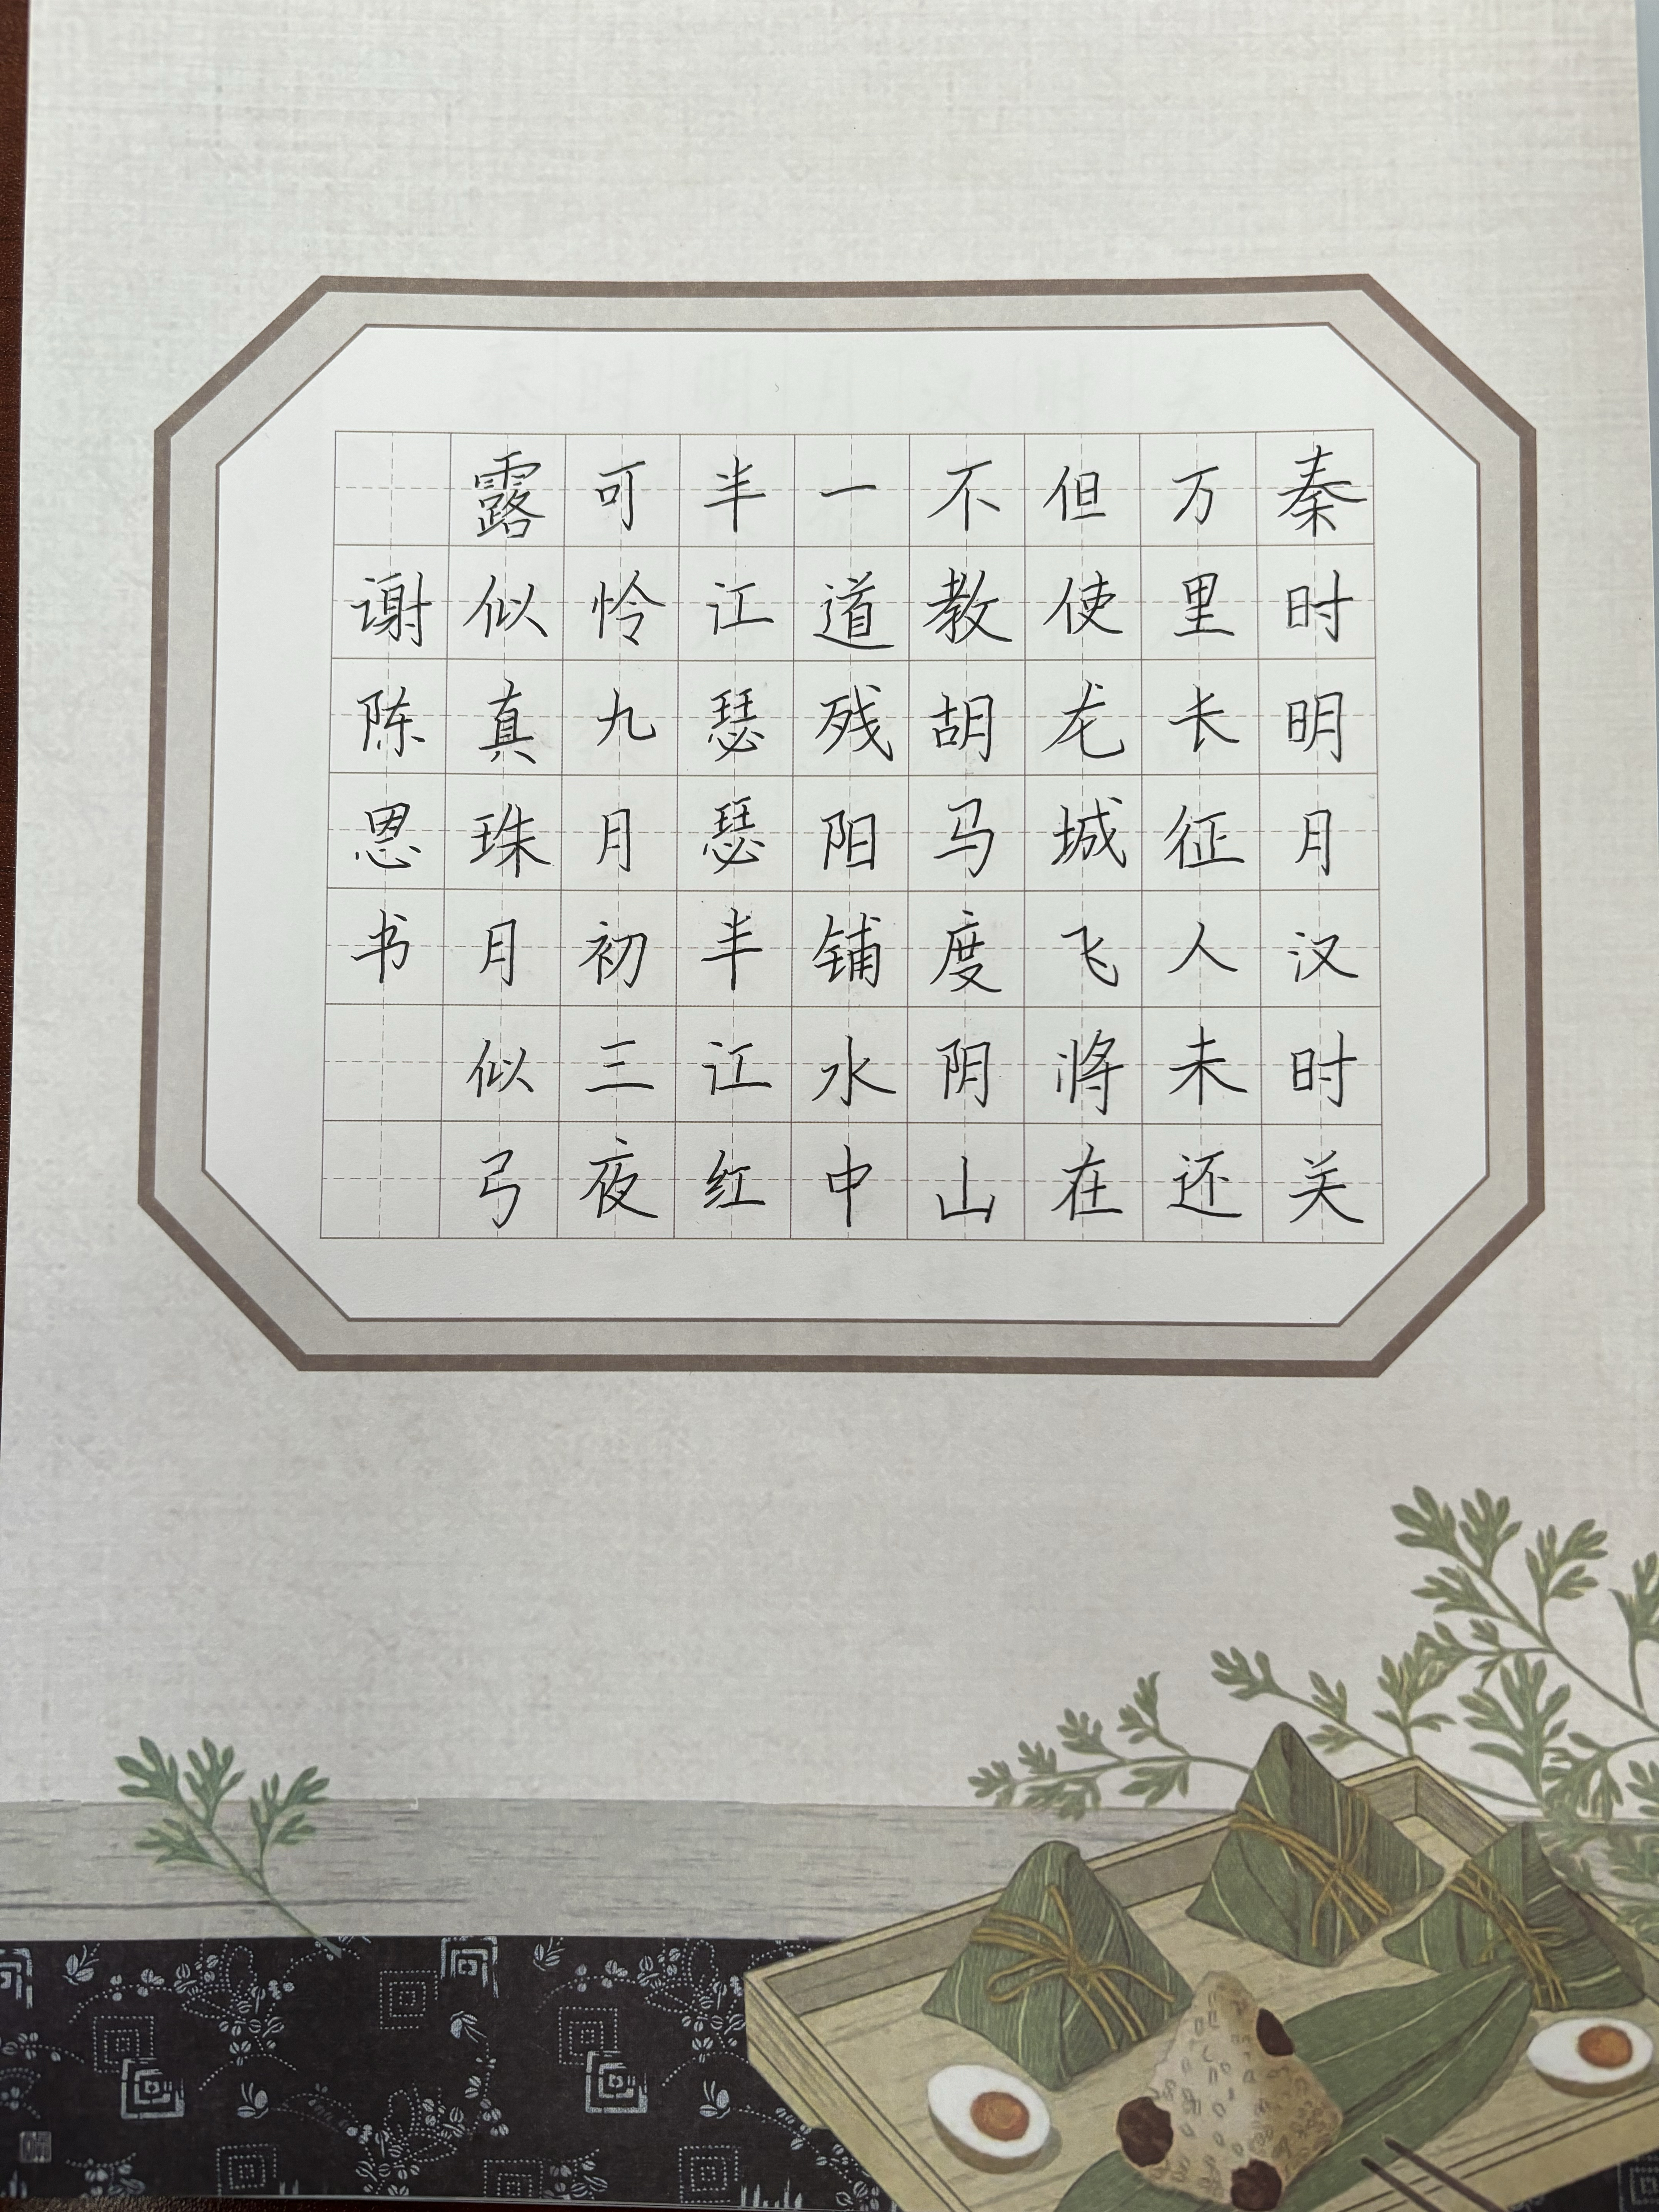 秦时明月汉时关
万里长征人未还
但使龙城飞将在
不教胡马度阴山
一道残阳铺水中
半江瑟瑟半江红
可怜九月初三夜
露似真珠月似弓
谢陈恩书